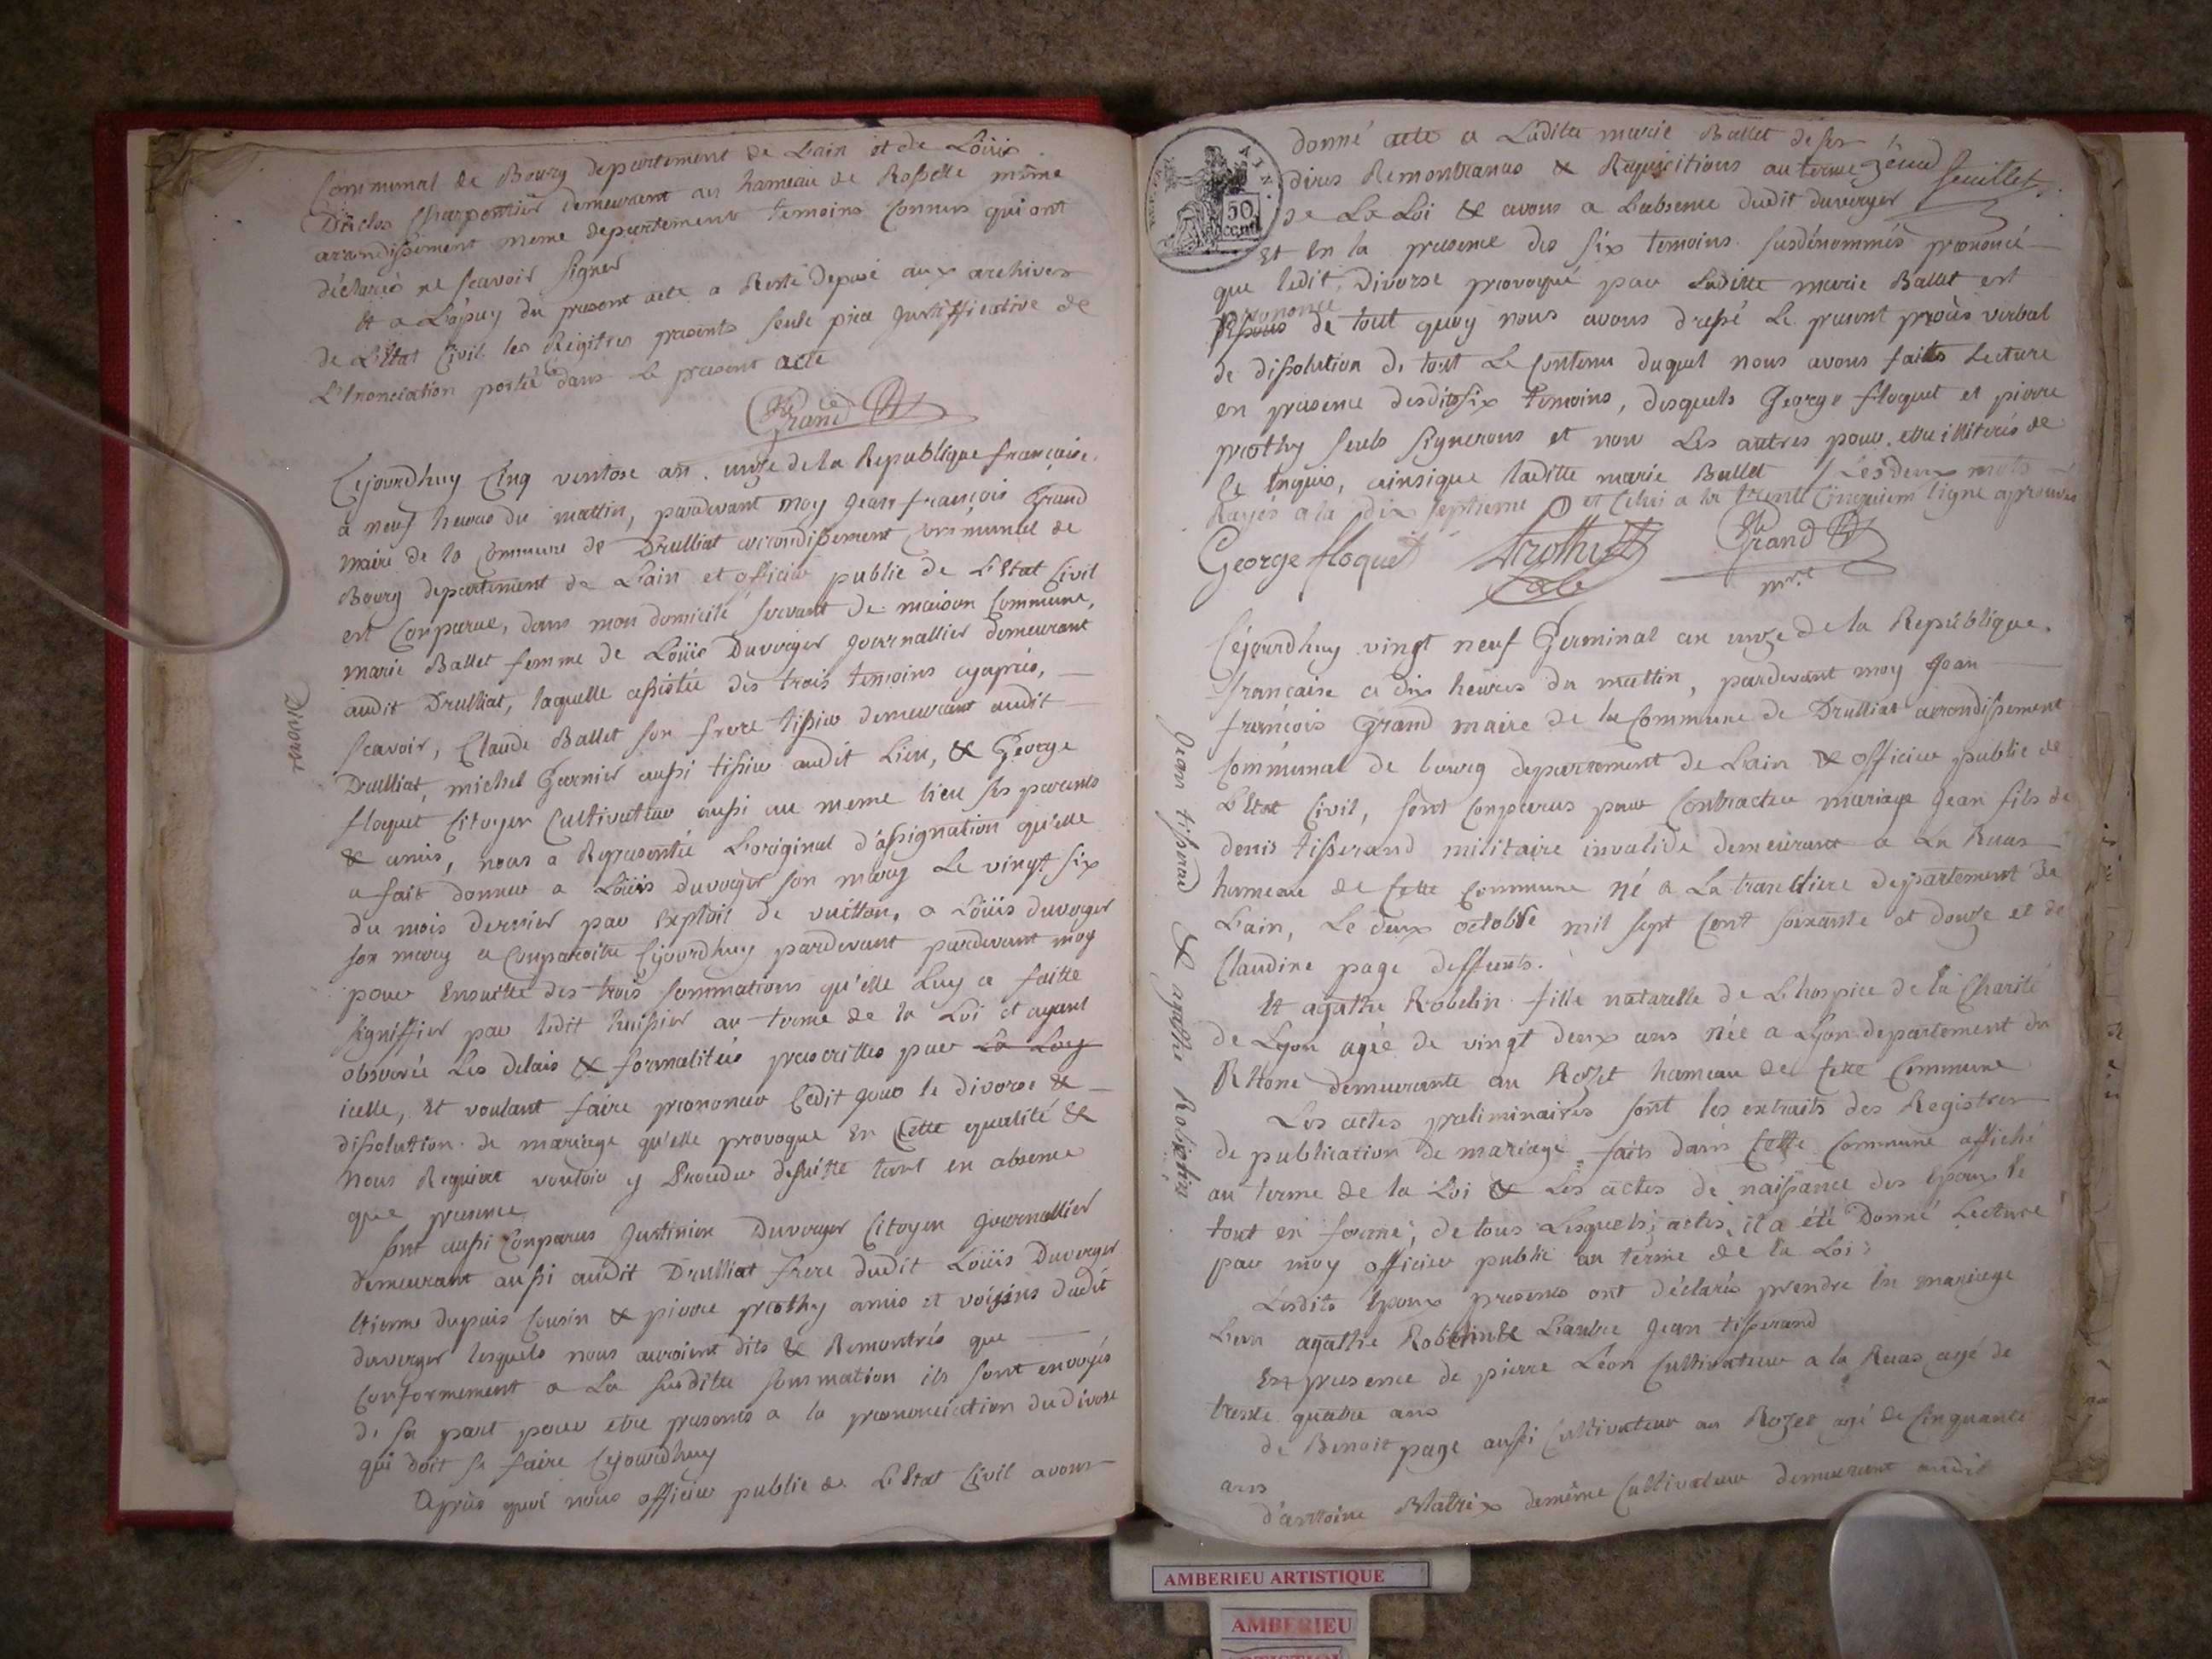 Communal de Bourg departement de Lain et de Loüis
Duclos Charpentier demeurant au hameau de Rossette même
arrondissement meme departement temoins Connus qui ont
déclarés ne scavoir signer
Et a Lápuy du present acte a Resté deposé aux archives
de L'Etat Civil les Régitres presents seule piece Justifficative de
L'Enonciation portée dans le present acte
Grand
Cejourdhuy Cinq ventose an unze de la Republique française
a neuf heures du mattin, pardevant moy Jean françois Grand
maire de la Commune de Drulliat arrondissement Communal de
Bourg departement de Lain et officier public de L'Etat Civil
est Comparue, dans mon domicile servant de maison Commune,
marie Ballet femme de Loüis Duverger Journallier demeurant
audit Drulliat, laquelle assistée des trois temoins cyaprés,
scavoir, Claude Ballet son frere tissier demeurant audit
Drulliat, michel Garnier aussi tissier audit Lieu, & George
floquet Citoyen Cultivateur aussi au meme lieu ses parents
& amis, nous a Representée L'original d'assignation qu'elle
a fait donner a Loüis duverger son mary Le vingt six
du mois dernier par Exploit de vuitton, a Loüis duverger
son mary a Comparoitre Cejourdhuy pardevant pardevant moy
pour Ensuitte des trois sommations qu'elle Luy a faitte
signiffier par ledit huissier au terme de la Loi et ayant
observée Les delais & formalitées prescrittes par La Loy
icelle, Et voulant faire prononcer Cedit jour le divorse &
dissolution de mariage qu'elle provoque En Cette qualité &
Nous Requiert vouloir y Proceder desuitte tant en absence
que presence
Sont aussi Comparus Justinien Duverger Citoyen Journallier
demeurant aussi audit Drulliat frere dudit Loüis Duverger
Etienne dupuis Cousin & pierre prothy amis et voisins dudit
duverger lesquels nous auroient dits & Remontrés que
Conformement a La susditte sommation ils sont envoyés
de sa part pour etre presents a la prononciation du divorse
qui doit se faire Cejourdhuy
Après quoi nous officier public de L'Etat Civil avons
Divorse
donné acte a Laditte marie Ballet de ses
dires Remontrances & Requisitions au terme
feuillet
de La Loi & avons a L'absence dudit duverger
Et En la presence des six temoins susdénommés prononcé
que ledit Divorse provoqué par Laditte marie Ballet est
prononcé
de tout quoy nous avons dressé Le present procès verbal
de dissolution de tout Le Contenu duquel nous avons faitts Lecture
en presence desdits six temoins, desquels George floquet et pierre
prothy seuls signerons et non Les autres pour etre illitérés de
Ce Enquis, ainsique laditte marie Ballet / Les deux mots
Rayés a la dix septieme et Celui a la trente Cinquiem ligne aprouvés
George floquet Prothy Grand
mre
50 cent
Cejourdhuy vingt neuf Germinal an unze de la République
française a dix heures du mattin, pardevant moy Jean
françois Grand maire de la Commune de Drulliat arrondissement
Communal de bourg departement de Lain & officier public de
L'Etat Civil, sont Comparus pour Contracter mariage Jean fils de
denis tisserand militaire invalide demeurant a La Ruas
hameau de Cette Commune né a La tranclliere departement de
Lain, Le deux octobre mil sept Cent soixante et douze et de
Claudine page deffunts.
Et agathe Robelin fille naturelle de L'hospice de la Charité
de Lyon agée de vingt deux ans née a Lyon departement du
Rhone demeurante au Rozet hameau de Cette Commune
Les actes preliminaires sont les extraits des Registres
de publication de mariage faits dans Cette Commune affiché
au terme de la Loi & Les actes de naissance des Epoux le
tout en forme; de tous Lesquels actes il a été Donné Lecture
par moy officier public au terme de la Loi
Lesdits Epoux presents ont déclarés prendre En mariage
L'un agathe Robelin & L'autre Jean tisserand
En presence de pierre Léon Cultivateur a la Ruas agé de
trente quatre ans
de Benoit page aussi Cultivateur au Rozet agé de Cinquante
ans
d'antoine Blatrix demême Cultivateur demeurant audit
Jean tisserand & agathe Robelin
AMBERIEU ARTISTIQUE
AMBERIEU
ARTISTIQUE